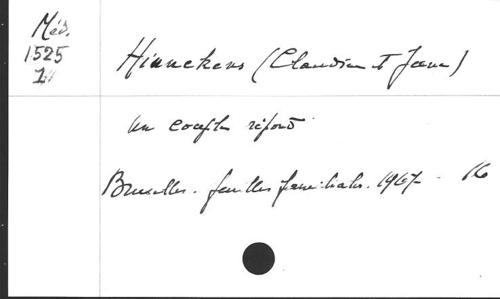 Méd.
1525
Hinnekens (Claudine et Jean)
un couple répond
Bruxelles. feuilles familiales. 1967 - 16